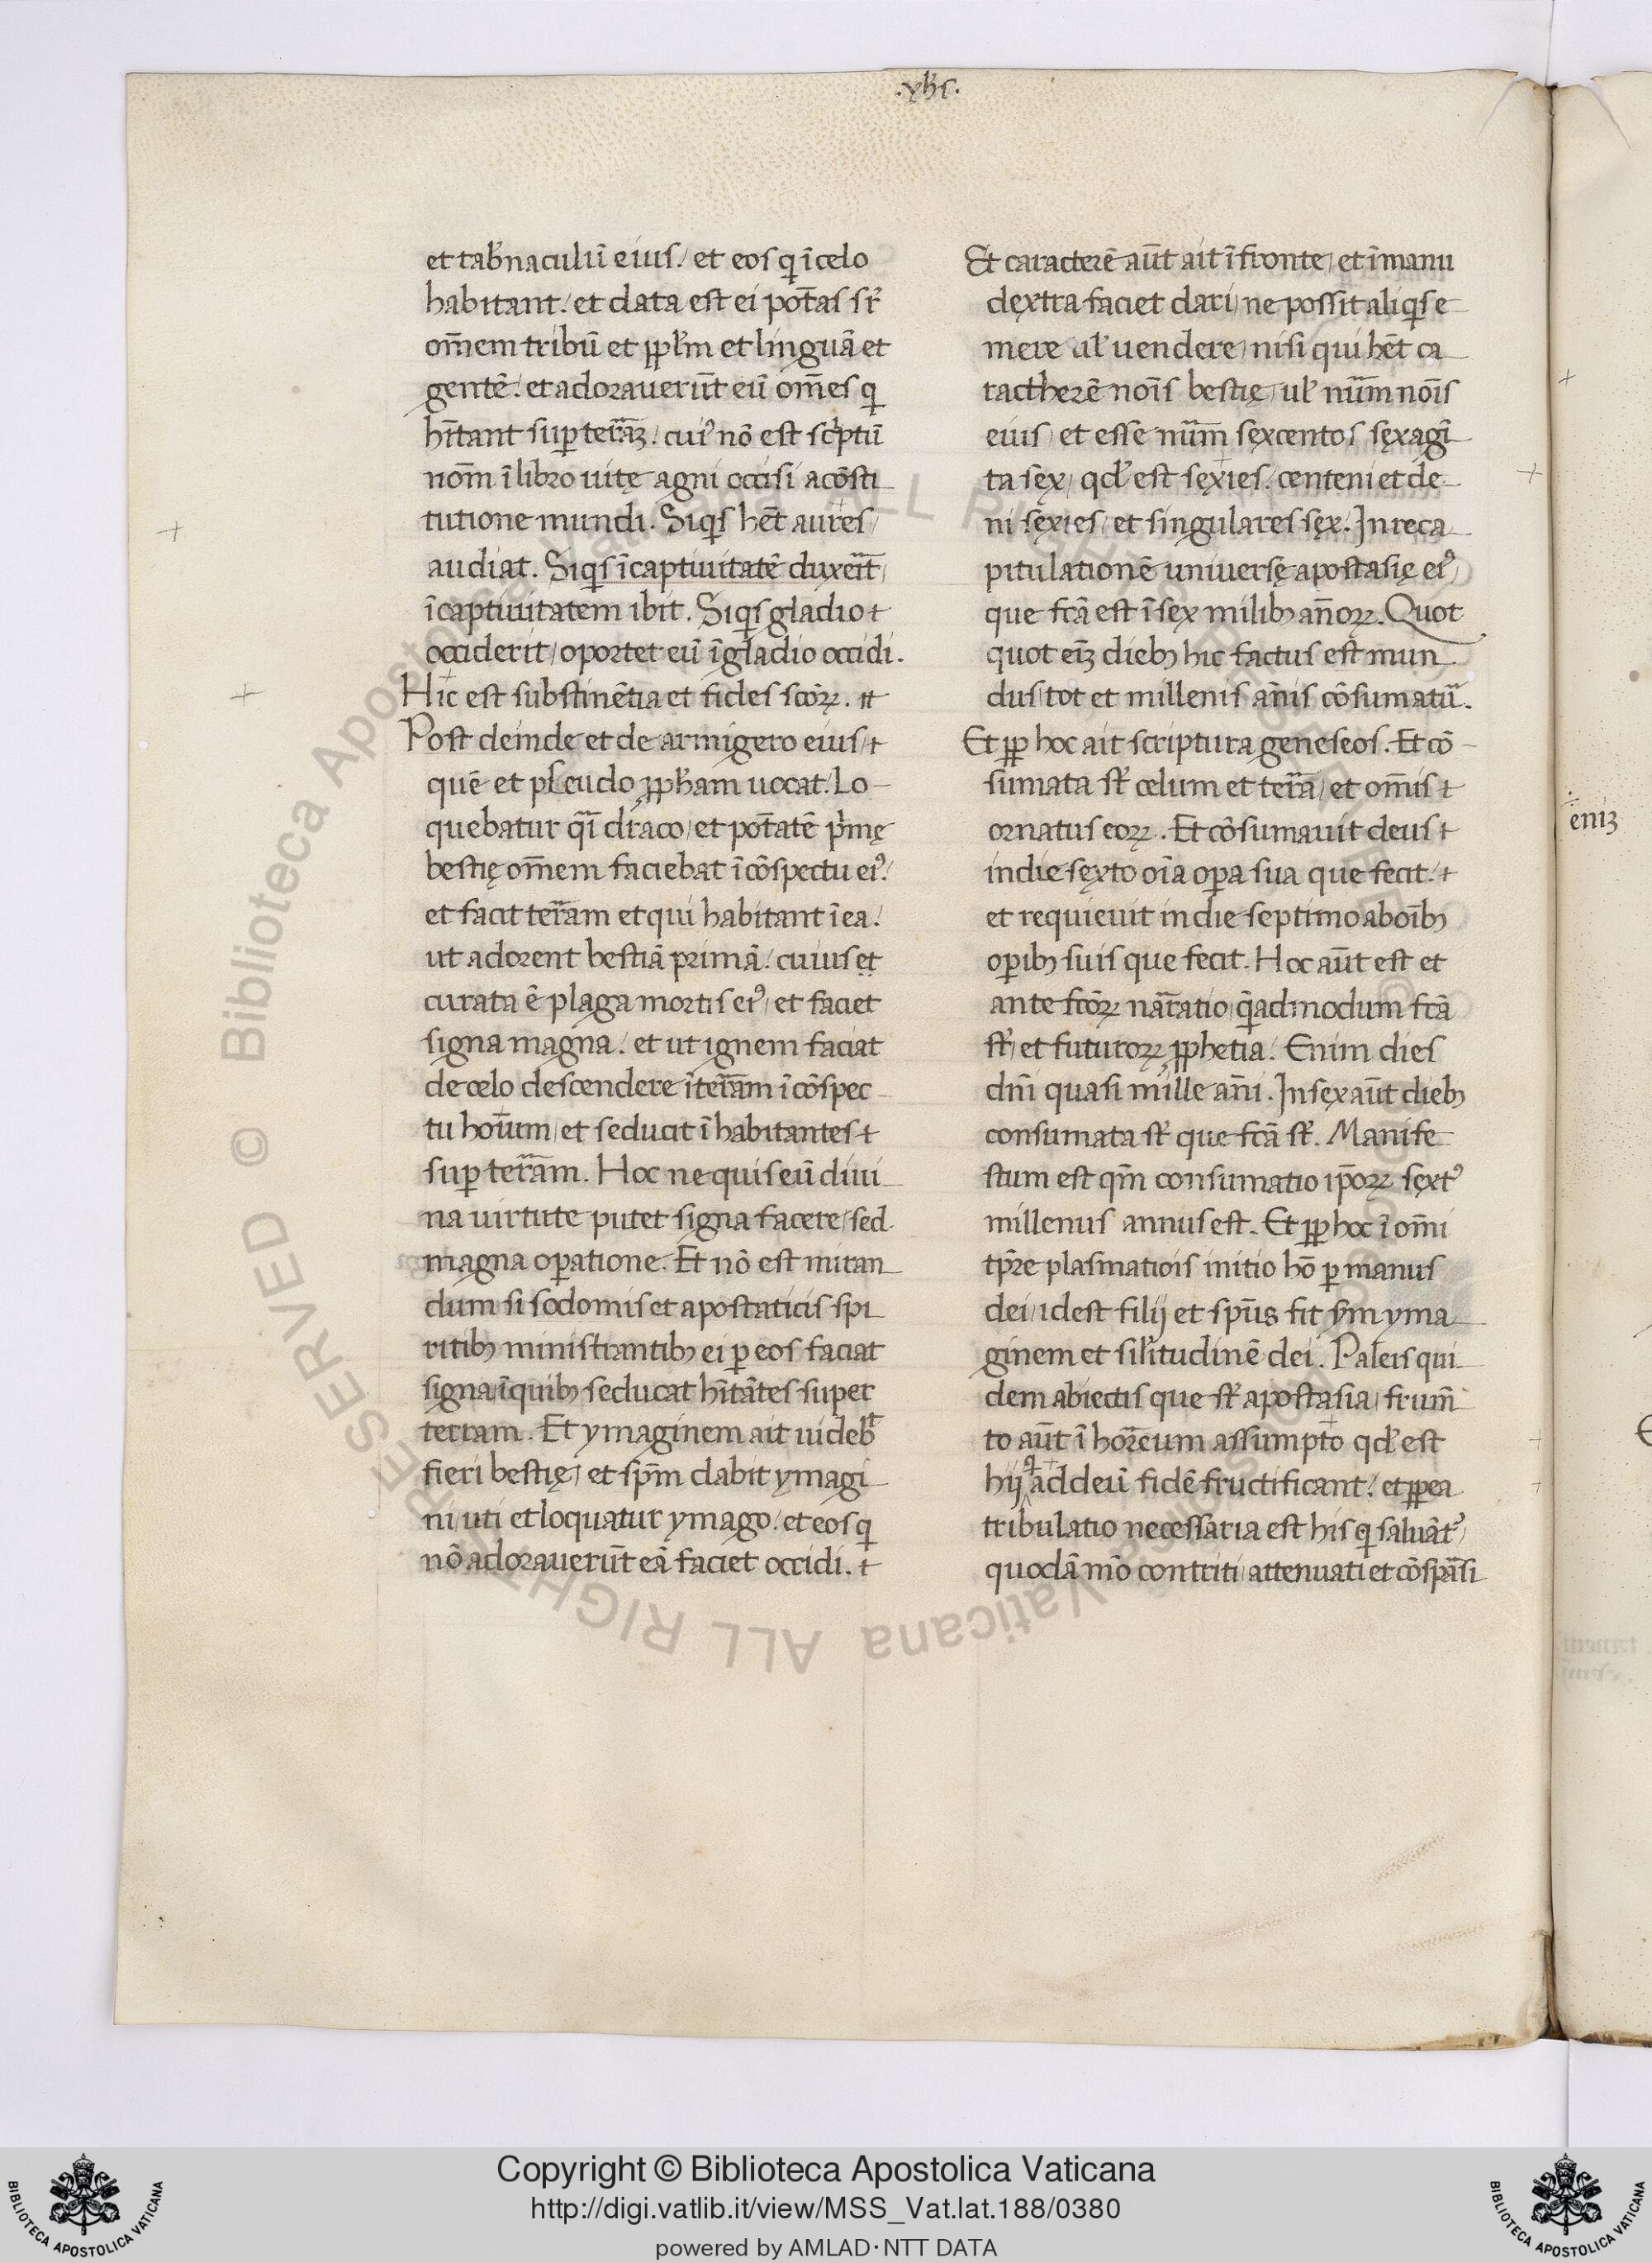 .yhs.
et tab̃naculũ eius / et eos q̃ ĩ celo
habitant / et data est ei pot̃as sr̃
om̃em tribũ et pp̃lm et linguã et
gentẽ / et adorauerũt eũ om̃es q̃
hr̃tant sup terrã / cuiꝰ nõ est scⁱptũ
nom̃ ĩ libro uitę agni occisi a cõsti
tutione mundi. Siqⁱs hẽt aures /
audiat. Siqⁱs ĩ captiuitatẽ duxerit /
ĩ captiuitatem ibit. Siqⁱs gladio
occiderit / oportet eũ ĩ gladio occidi.
Hic est substinẽtia et fides scõꝝ.
Post deinde et de armigero eius /
quẽ et pseudo pp̃ham uocat / Lo-
quebatur qⁱ draco / et pot̃atẽ pⁱmę
bestię om̃em faciebat ĩ cõspectu eiꝰ /
et facit terram et qui habitant ĩ ea /
ut adorent bestiã primã / cuius et
curata ẽ plaga mortis eiꝰ / et faciet
signa magna / et ut ignem faciat
de celo descendere ĩ terram ĩ cõspec-
tu hoĩum / et seducit ĩhabitantes
sup terram. Hoc ne quis eũ diui
na uirtute putet signa facere / sed
magna opatione. Et nõ est miran
dum si sodomis et apostaticis spi
ritibꝫ ministrantibꝫ ei p eos faciat
signa / ĩ quibꝫ seducat hr̃tãtes super
terram. Et ymaginem ait uidebᵗ
fieri bestię / et sp̃m dabit ymagi
ni / uti et loquatur ymago / et eos q̃
nõ adorauerũt eã faciet occidi.
Et caracterẽ aũt ait ĩ fronte / et ĩ manu
dextra faciet dari / ne possit aliqⁱs e
mere ul̃ uendere / nisi qui hẽt ca
ractherẽ noĩs bestię / ul̃ num̃ noĩs
eius / et esse num̃ sęxcentos sęxagĩ
ta sęx / qd̃ est sęxies centeni et de
ni sęxies / et singulares sęx. In reca
pitulationẽ uniuersę apostasię eiꝰ /
que fcã est ĩ sex milibꝫ an̄oꝝ. Quot
quot eĩ diebꝫ hic factus est mun
dus / tot et millenis an̄is cõsumatur̃.
Et pp̃ hoc ait scriptura geneseos. Et cõ-
sumata st̃ celum et terra / et om̃is
ornatus eoꝝ. Et cõsumauit deus
in die sęxto oĩa opa sua que fecit /
et requieuit in die septimo ab oĩbꝫ
opibꝫ suis que fecit. Hoc aũt est et
ante fcõꝝ narratio / q̃admodum fcã
st̃ / et futuroꝝ pp̃hetia. Enim dies
dn̄i quasi mille an̄i. In sęx aũt diebꝫ
consumata st̃ que fcã st̃. Manife
stum est qm̃ consumatio ip̃oꝝ sęxtꝰ
millenus annus est. Et pp̃ hoc ĩ om̃i
tp̃re plasmatiois initio hõ p manus
dei / idest filij et sp̃us fit s̃m yma
ginem et sil̃itudinẽ dei. Paleis qui
dem abiectis que st̃ apostasia / frum̃
to aũt ĩ horreum assumpto qd̃ est
hij q̃ ad deũ fidẽ fructificant / et pp̃ ea
tribulatio necessaria est his q̃ saluãtꝰ /
quodã mõ contriti / attenuati et cõspãsi
eniꝫ
© Biblioteca Apostolica Vaticana ALL RIGHTS RESERVED
Copyright © Biblioteca Apostolica Vaticana
http://digi.vatlib.it/view/MSS_Vat.lat.188/0380
powered by AMLAD·NTT DATA
BIBLIOTECA APOSTOLICA VATICANA
BIBLIOTECA APOSTOLICA VATICANA